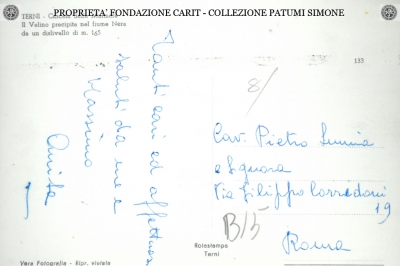 PROPRIETA' FONDAZIONE CARIT - COLLEZIONE PATUMI SIMONE
TERNI -
Il Velino precipita nel fiume Nera
da un dislivello di m. 165
133
8/
Tanti cari ed affettuosi
saluti da me e
Massimo
Cav. Pietro
e Signora
Via Filippo Corridoni
19
Roma
B/5
Rotostampa
Terni
Vera Fotografia - Ripr. vietata